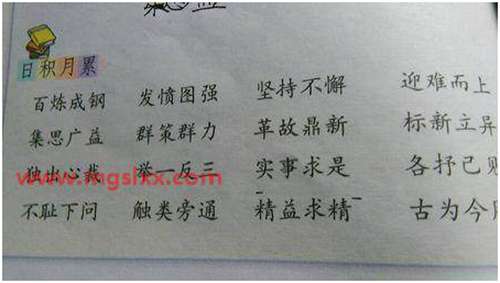 集思益
日积月累
百炼成钢 发愤图强 坚持不懈 迎难而上
集思广益 群策群力 革故鼎新 标新立异
独出心裁 举一反三 实事求是 各抒己
www.mgslxx.com
不耻下问 触类旁通 精益求精 古为今